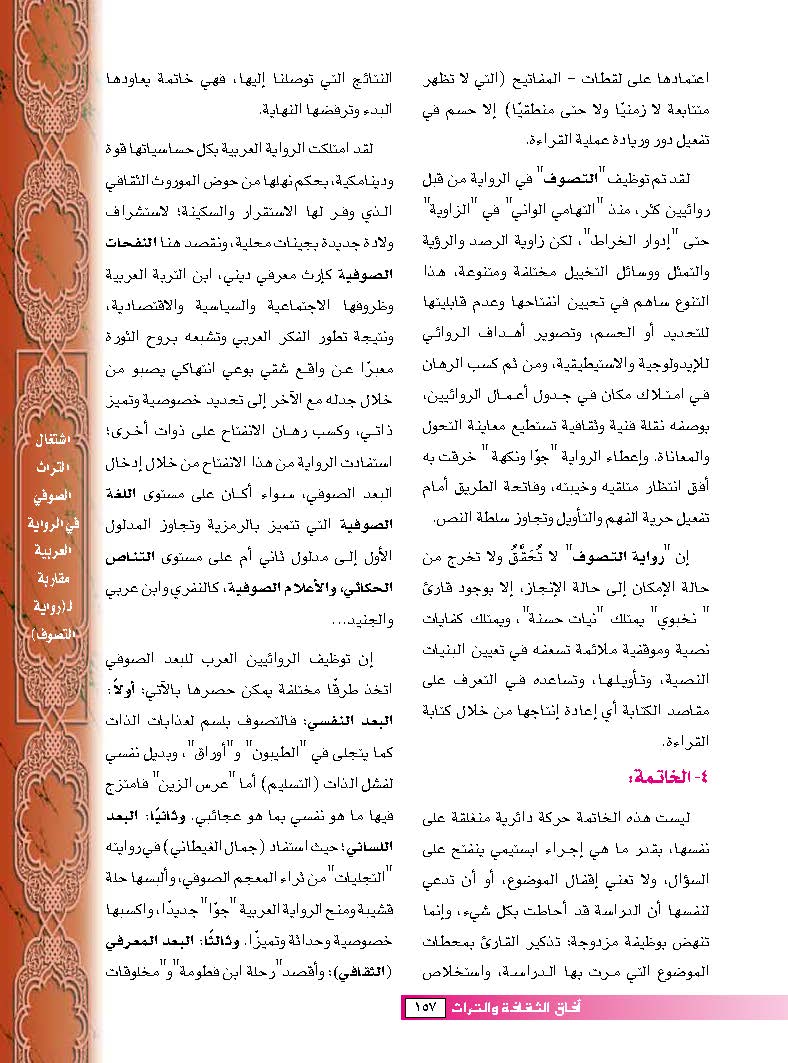 اعتمادها على لقطات – المفاتيح (التي لا تظهر
متتابعة لا زمنيًا ولا حتى منطقيًا) إلا حسم في
تفعيل دور وريادة عملية القراءة.
لقد تم توظيف "التصوف" في الرواية من قبل
روائيين كثر، منذ "التهامي الواني" في "الزاوية"
حتى "إدوار الخراط"، لكن زاوية الرصد والرؤية
والتمثل ووسائل التخييل مختلفة ومتنوعة، هذا
التنوع ساهم في تعيين انفتاحها وعدم قابليتها
للتحديد أو الحسم، وتصوير أهداف الروائي
للإيدولوجية والاستيطيقية، ومن ثم كسب الرهان
في امتلاك مكان في جدول أعمال الروائيين،
بوصفه نقلة فنية وثقافية تستطيع معاينة التحول
والمعاناة. وإعطاء الرواية "جوًا ونكهة" خرقت به
أفق انتظار متلقيه وخيبته، وفاتحة الطريق أمام
تفعيل حرية الفهم والتأويل وتجاوز سلطة النص.
إن "رواية التصوف" لا تُحَقَّقُ ولا تخرج من
حالة الإمكان إلى حالة الإنجاز، إلا بوجود قارئ
" نخبوي" يمتلك "نيات حسنة"، ويمتلك كفايات
نصية وموقفية ملائمة تسعفه في تعيين البنيات
النصية، وتأويلها، وتساعده في التعرف على
مقاصد الكتابة أي إعادة إنتاجها من خلال كتابة
القراءة.
٤- الخاتمة:
ليست هذه الخاتمة حركة دائرية منغلقة على
نفسها، بقدر ما هي إجراء ابستيمي ينفتح على
السؤال، ولا تعني إقفال الموضوع، أو أن تدعي
لنفسها أن الدراسة قد أحاطت بكل شيء، وإنما
تنهض بوظيفة مزدوجة: تذكير القارئ بمحطات
الموضوع التي مرت بها الدراسة، واستخلاص
النتائج التي توصلنا إليها، فهي خاتمة يعاودها
البدء وترفضها النهاية.
لقد امتلكت الرواية العربية بكل حساسياتها قوة
ودينامكية، بحكم نهلها من حوض الموروث الثقافي
الذي وفر لها الاستقرار والسكينة؛ لاستشراف
ولادة جديدة بجينات محلية، ونقصد هنا النفحات
الصوفية كإرث معرفي ديني، ابن التربة العربية
وظروفها الاجتماعية والسياسية والاقتصادية،
ونتيجة تطور الفكر العربي وتشبعه بروح الثورة
معبرًا عن واقع شقي بوعي انتهاكي يصبو من
خلال جدله مع الآخر إلى تحديد خصوصية وتميز
ذاتي، وكسب رهان الانفتاح على ذوات أخرى؛
استفادت الرواية من هذا الانفتاح من خلال إدخال
البعد الصوفي، سواء أكان على مستوى اللغة
الصوفية التي تتميز بالرمزية وتجاوز المدلول
الأول إلى مدلول ثاني أم على مستوى التناص
الحكائي، والأعلام الصوفية، كالنفري وابن عربي
والجنيد...
إن توظيف الروائيين العرب للبعد الصوفي
اتخذ طرقًا مختلفة يمكن حصرها بالآتي: أولاً:
البعد النفسي: فالتصوف بلسم لعذابات الذات
كما يتجلى في "الطيبون" و"أوراق"، وبديل نفسي
لفشل الذات (التسليم) أما "عرس الزين" فامتزج
فيها ما هو نفسي بما هو عجائبي. وثانيًا: البعد
اللساني؛ حيث استفاد (جمال الغيطاني) في روايته
"التجليات" من ثراء المعجم الصوفي، وألبسها حلة
قشيبة ومنح الرواية العربية "جوًا" جديدًا، واكسبها
خصوصية وحداثة وتميزًا. وثالثًا: البعد المعرفي
(الثقافي): وأقصد "رحلة ابن فطومة" و"مخلوقات
اشتغال
التراث
الصوفي
في الرواية
العربية
مقاربة
لـ(رواية
التصوف)
آفاق الثقافة والتراث ١٥٧